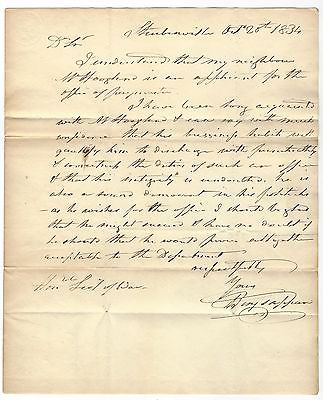 Steubenville Oct 20th 1834
Dr Sir
I understand that my neighbour
Mr Hoagland is an applicant for the
office of paymaster
I have been long acquainted
with Mr Hoagland & can say with much
confidence that his business habits will
qualify him to discharge with punctuality
& correctness the duties of such an office
& that his integrity is undoubted. he is
also a sound democrat in his politicks
as he wishes for the office I should be glad
that he might succeed & have no doubt if
he should that he would prove altogether
acceptable to the Department
respectfully
Yours
Benj Tappan
Honble Secty of War